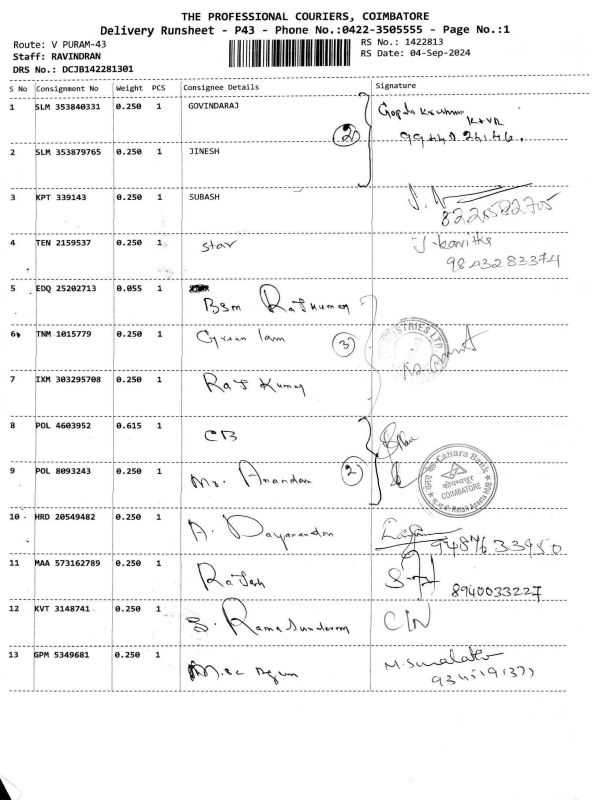 THE PROFESSIONAL COURIERS, COIMBATORE
Delivery Runsheet - P43 - Phone No.:0422-3505555 - Page No.:1
Route: V PURAM-43
RS No.: 1422813
Staff: RAVINDRAN
RS Date: 04-Sep-2024
DRS No.: DCJB142281301
S No Consignment No Weight PCS Consignee Details Signature
1 SLM 353840331 0.250 1 GOVINDARAJ
2
2 SLM 353879765 0.250 1 JINESH
3 KPT 339143 0.250 1 SUBASH
4 TEN 2159537 0.250 1 star J. Kavitha
9843283374
5 EDQ 25202713 0.055 1
BSM Rajkumar
6 TNM 1015779 0.250 1 Green lam 3
7 IXM 303295708 0.250 1 Raj Kumar
8 POL 4603952 0.615 1 CB
9 POL 8093243 0.250 1 Mr. Anandan 2
Canara Bank
कोयम्बत्तूर
COIMBATORE
Retail Assets HUB
10 HRD 20549482 0.250 1 A. Dayanandan
11 MAA 573162789 0.250 1 Rajesh
8940033227
12 KVT 3148741 0.250 1 S. Rama Sundaram CIN
13 GPM 5349681 0.250 1 M.Sc